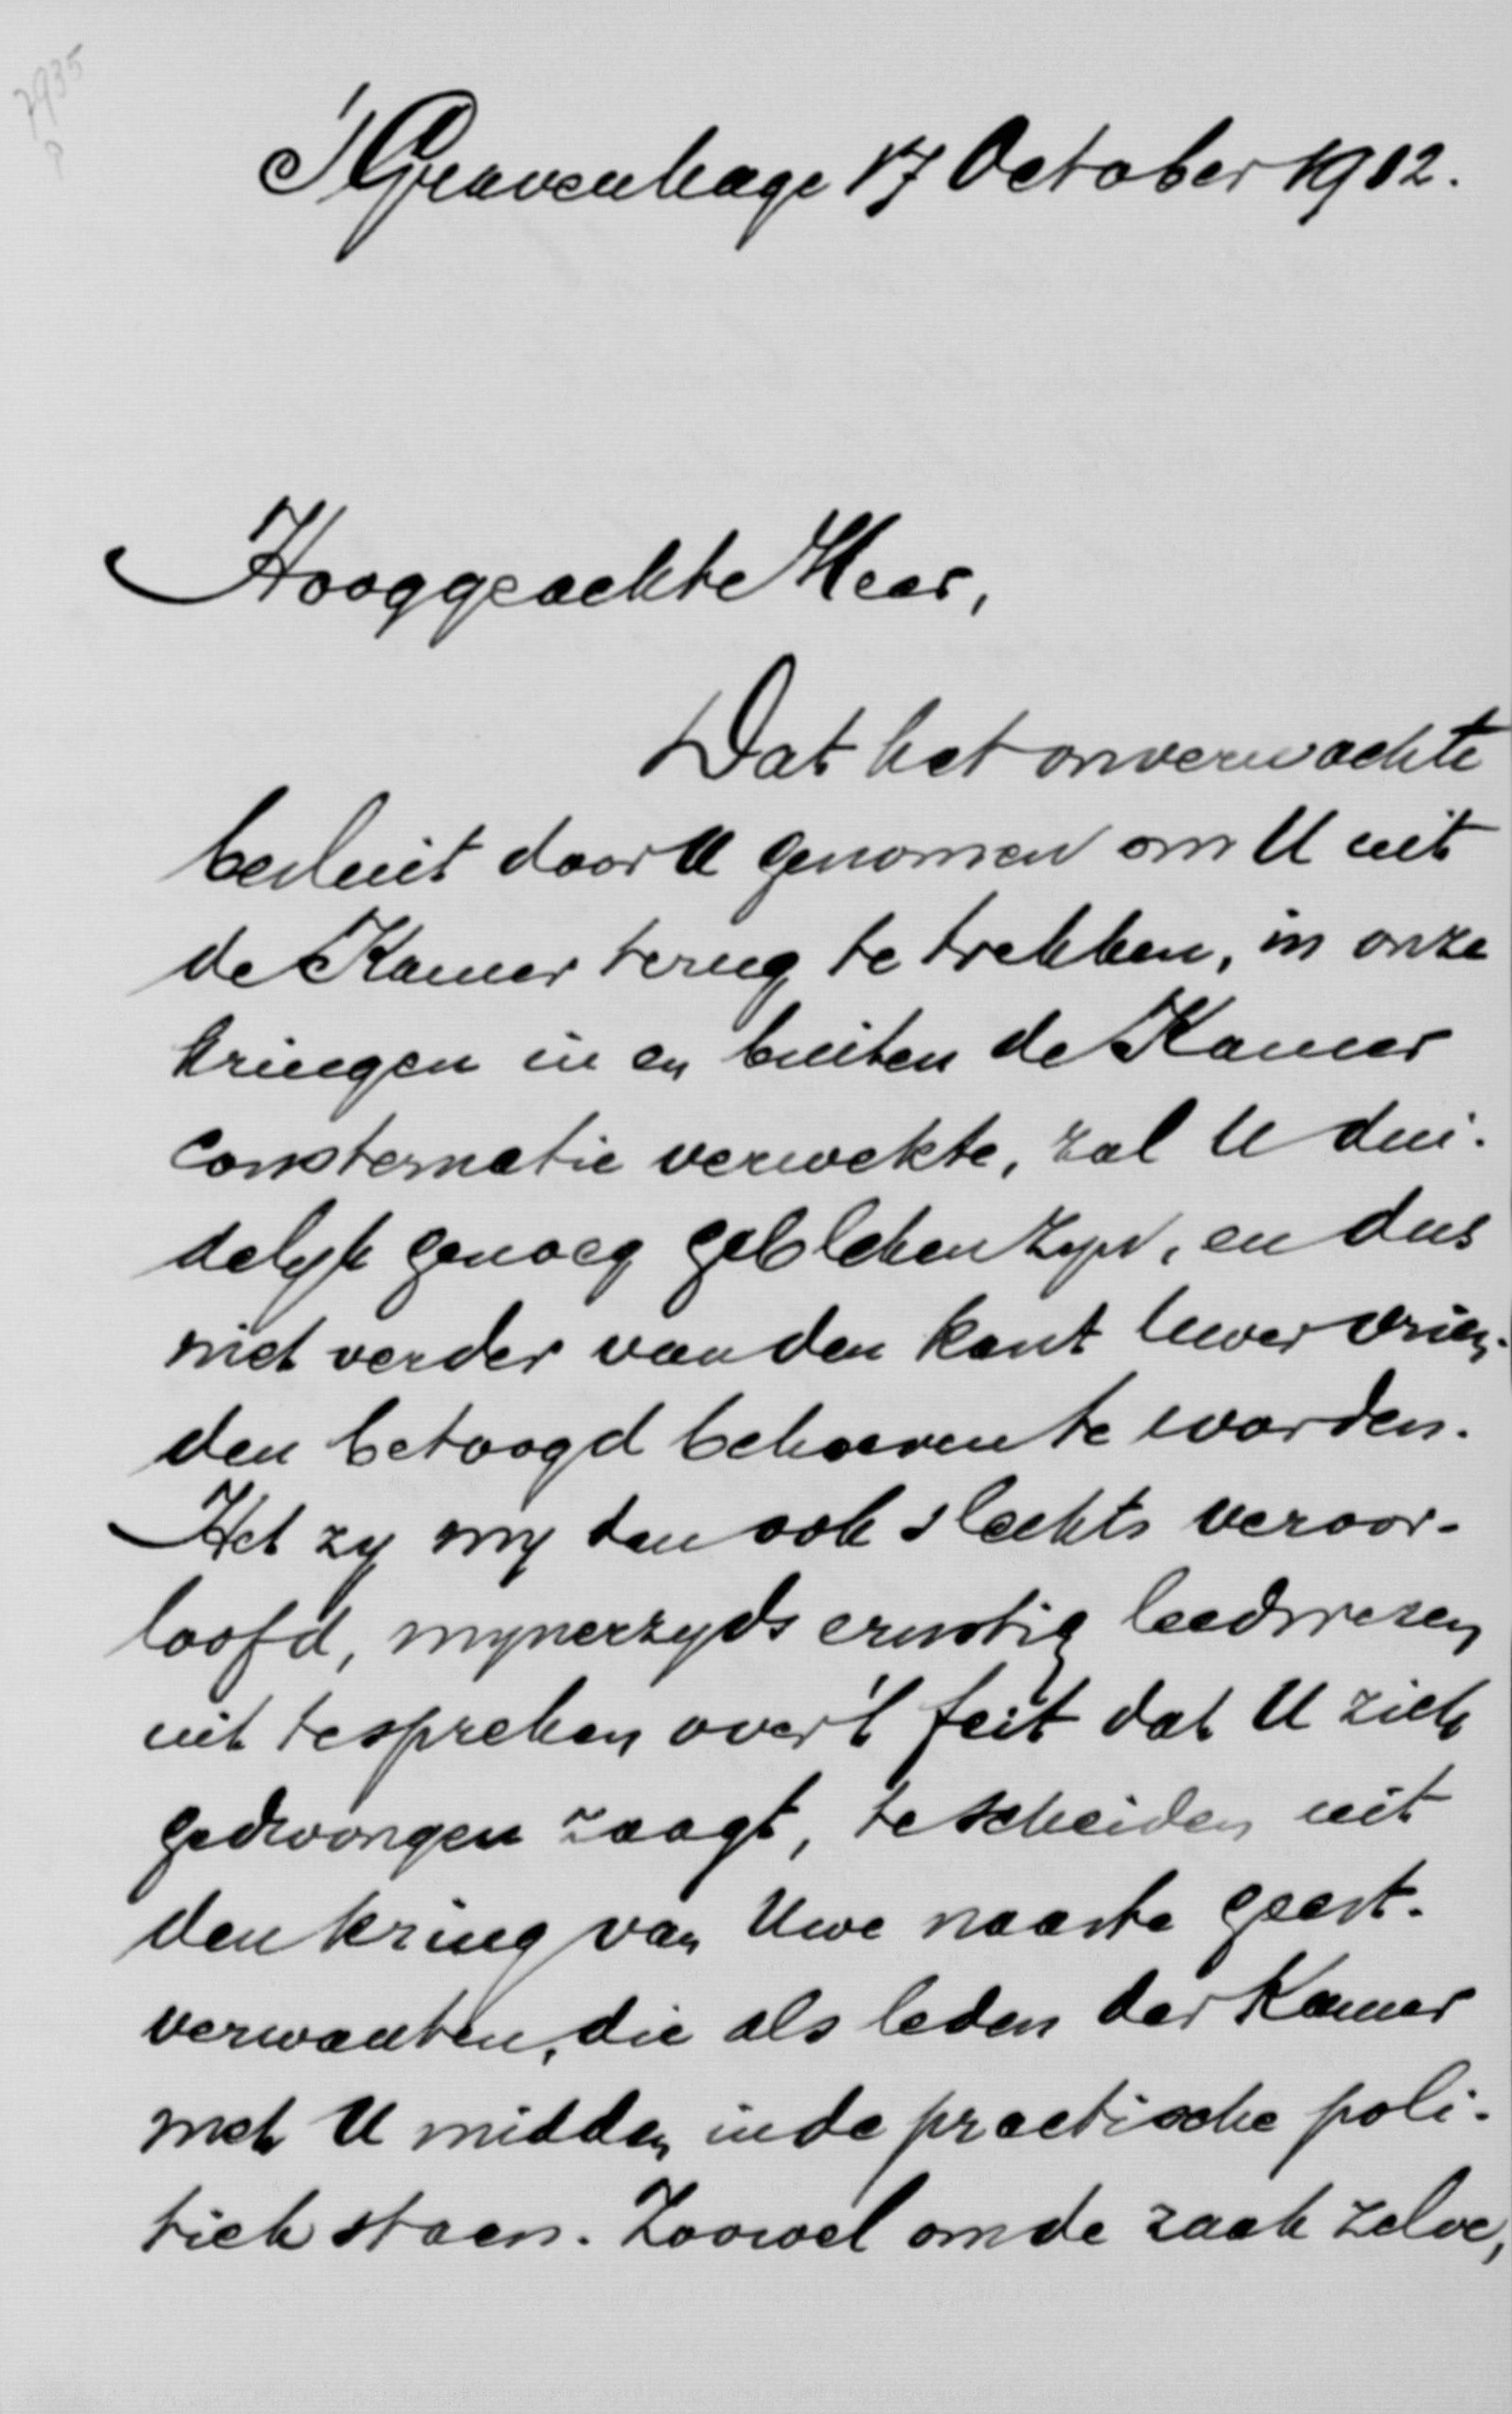 7935
'sGravenhage 17 October 1912.
Hooggeachte Heer,
Dat het onverwachte
besluit door U genomen om U uit
de Kamer terug te trekken, in onze
kringen in en buiten de Kamer
consternatie verwekte, zal U dui-
delyk genoeg gebleken zyn, en dus
niet verder van den kant Uwer vrien-
den betoogd behoeven te worden.
Het zy my dan ook slechts veroor-
loofd, mynerzyds ernstig leedwezen
uit te spreken over 't feit dat U zich
gedwongen zaagt, te scheiden uit
den kring van Uwe naaste geest-
verwanten, die als leden der Kamer
met U midden in de practische poli-
tiek staan. Zoowel om de zaak zelve,